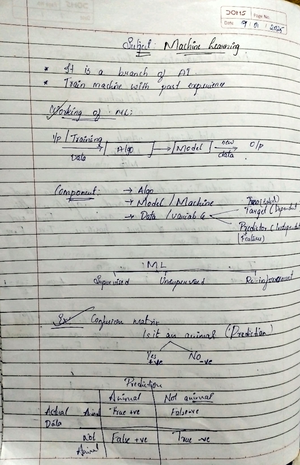 DOMS Page No.
Date 9 / 8 / 2025
Subject: Machine Learning
* It is a branch of AI
* Train machine with past experience
Working of ML:
I/p / Training Data → Algo → Model → new data → O/p
Component: → Algo
→ Model / Machine
→ Data / Variable
Target (Dependent
Predictor (Independent
(Feature)
ML
Supervised Unsupervised Reinforcement
Ex Confusion matrix
Is it an animal (Prediction)
Yes +ve No -ve
Prediction
Animal Not animal
Actual Data Ani True +ve False -ve
Not Animal False +ve True -ve